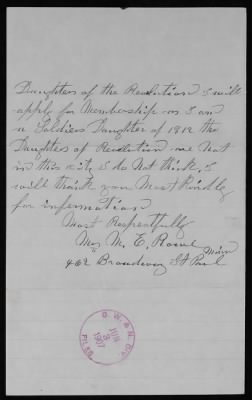 Daughters of the Revolution I will
apply for Membership as I am
a Soldiers Daughter of 1812 the
Daughters of Revolution are Not
in this city I do Not think, I
will thank you Most kindly
for information
Most Respectfully
Mrs M. E.
462 Broadway St Paul
Minn
O. W. & N. DIV.
JUN
3
1907
FILES